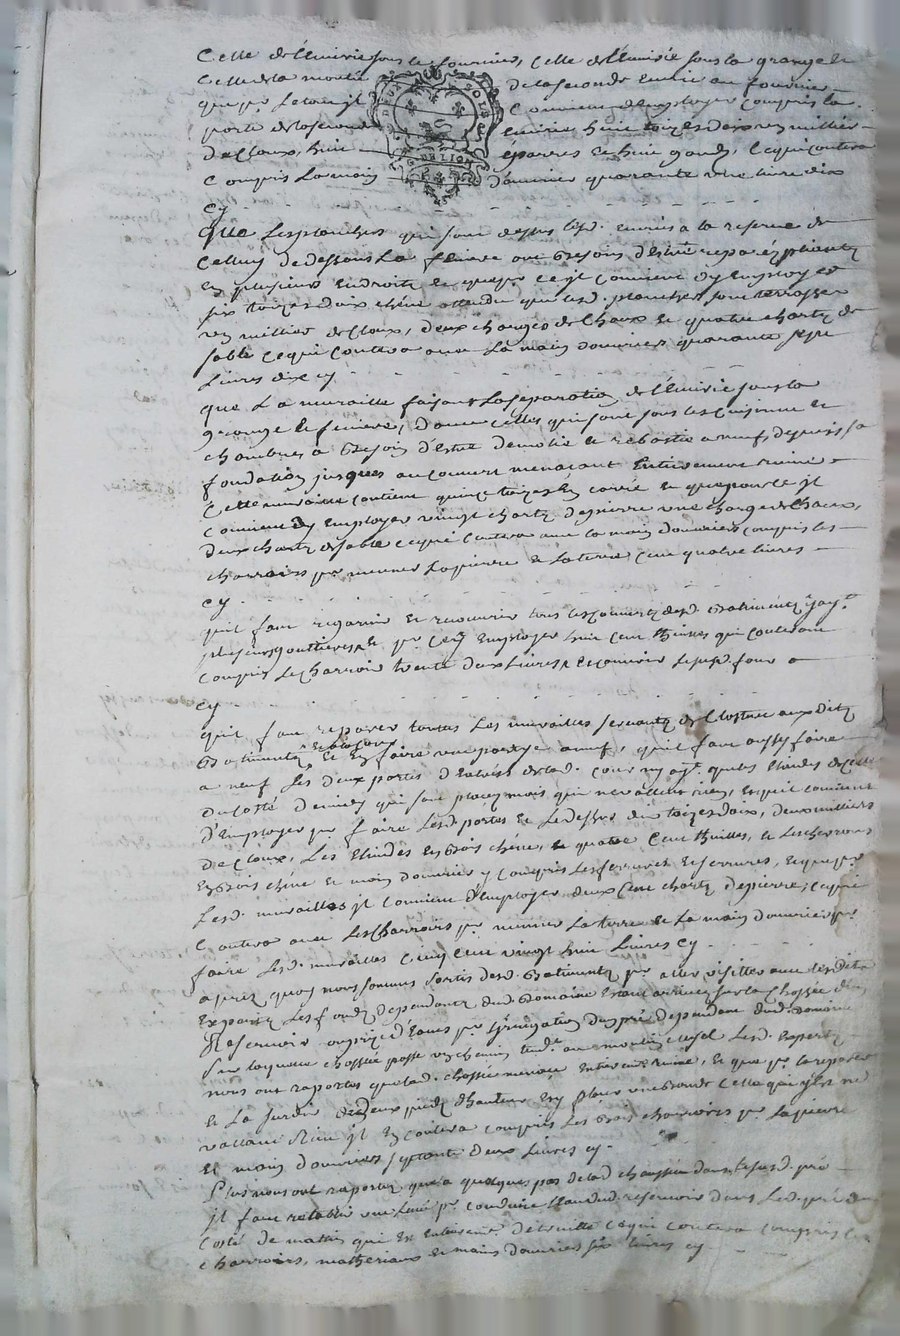 Celle de l'Emirie sous le fournier, Celle de l'Emirie sous la grange et
Celle de la moitié de la seconde Emirie au fournier
que pr le tout jl Convient d'employer Compris la
porte de la seconde Emirie, huit toizes daix un millier
de Cloux, huit éparres et huit gonds, Ce qui Contera
Compris La main d'ouvrier quarante une livre dix
cy
DEUX SOLS
G DE LION
Que Les planches qui sont dessus lesd. Emiries a la reserve de
Celluy de dessous La feniere ont Besoins d'Estre reparés
En plusieurs Endroits Et que pr ce jl Convient d'y Employer
six toizes daix chêne attendu que lesd. planches sont
un millier de Cloux, deux charges de Chaux et quatre charts de
sable Ce qui Contera avec La main d'ouvriers quarante sept
Livres dix cy
que La muraille faisant La separation de l'Emirie sous la
grange et feniere, d'avec Celles qui sont sous les Cuisinne et
chambres a Besoin d'Estre demolie et rebastie a neuf, depuis sa
fondation jusques au Couvert menacant Entierement ruine
Cette muraille Contient quinze toizes En carré Et que pour ce jl
Convient d'y Employer vingt charts de pierre une charge de Chaux,
deux charts de sable Ce qui Contera avec la main d'ouvriers Compris les
charrois pr mener La pierre et La terre Cent quatre livres
cy
qu'il faut regarnir Et recouvrir tous les Couverts desd. Batiments y ayt.
plusieurs gouttieres Et pr Ce y Employer huit Cent thuilles qui Couteront
Compris Le charroir trente deux Livres
cy
qu'il faut reparer toutes Les murailles servants de Closture auxdits
Batiments Et En faire une partye a neuf, qu'il faut aussy faire
a neuf Les deux portes d'Entrées de lad. Cour n'y ayt. que les
du Cotté de midy qui sont placez mais qui ne vallent rien, Et qu'il Convient
d'Employer pr faire Lesd. portes Et Le dessus dix toizes daix, deux milliers
de Cloux, Les En Bois chêne, Et quatre Cent thuilles, Et Les chevrons
En Bois chêne Et main d'ouvrier y Compris Les ferrures Et serrures, Et que pr
Lesd. murailles jl Convient d'Employer deux Cent charts de pierre, Ce qui
Contera avec Les Charrois pr mener La terre Et La main d'ouvriers pr
faire Lesd. murailles Cinq Cent vingt huit Livres cy
aprez quoy nous sommes sortis desd. Batiments pr aller visitter avec lesdits
Experts Les fonds dependants dud. Domaine Estant arrivez sur la Chossée d'un
Reservoir ou prize d'Eaux pr L'irrigation du pré Dependant dud. Domaine
sur laquelle chossée passe un chemin tendt. au moulin lesd. Experts
nous ont raportez que lad. chossée menace Entiere ruine, Et que pr la reparer
Et La de deux pieds d'hauteur Et y placer une Bonde Celle qui y Est ne
vallant Rien jl En Contera Compris Les Bois charroires pr La pierre
Et main d'ouvriers septante deux Livres cy
Plus nous ont raportez qu'a quelques pas de lad. chaussée dans le susd. pré
jl faut retablir une pr Conduire l'Eau dud. reservoir dans Led. pré du
Costé de matin qui Est Entierement detruitte Ce qui Contera Compris les
charrois, matheriaux Et mains d'ouvriers six livres cy